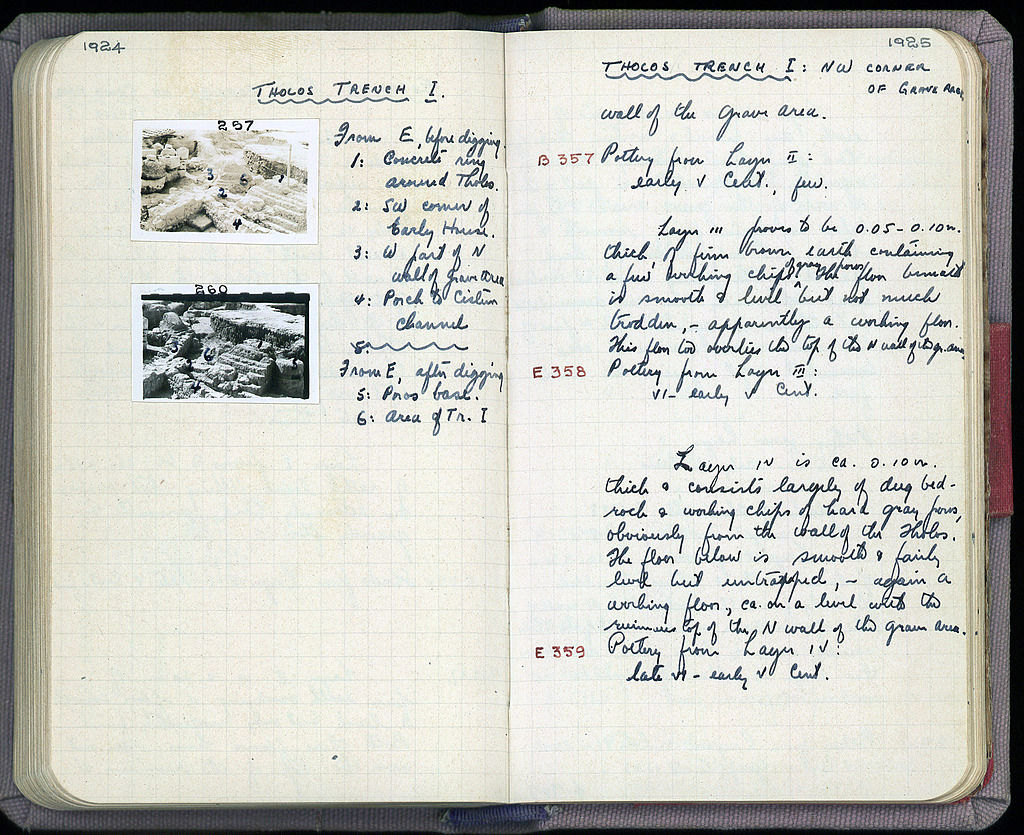 1924
THOLOS TRENCH I.
257
3 6 1
2
4
From E, before digging.
1: Concrete ring
around Tholos.
2: SW corner of
Early House.
3: W part of N
wall of grave area
4: Porch to Cistern
channel
260
3 6 5
5:
From E, after digging
5: Poros base.
6: Area of Tr. I
1925
THOLOS TRENCH I: NW CORNER
OF GRAVE AREA
wall of the Grave Area.
B 357 Pottery from Layer II:
early V Cent., few.
Layer III proves to be 0.05-0.10m.
thick, of firm brown earth containing
of gray poros
a few working chips. The floor beneath
is smooth & level but not much
trodden, - apparently a working floor.
This floor too overlies the top of the N wall of the gr. area
E 358 Pottery from Layer III:
VI - early V Cent.
Layer IV is ca. 0.10m.
thick & consists largely of dug bed-
rock & working chips of hard gray poros,
obviously from the wall of the Tholos.
The floor below is smooth & fairly
level but untrapped, - again a
working floor, ca. on a level with the
top of the N wall of the grave area.
E 359 Pottery from Layer IV:
late VI - early V Cent.